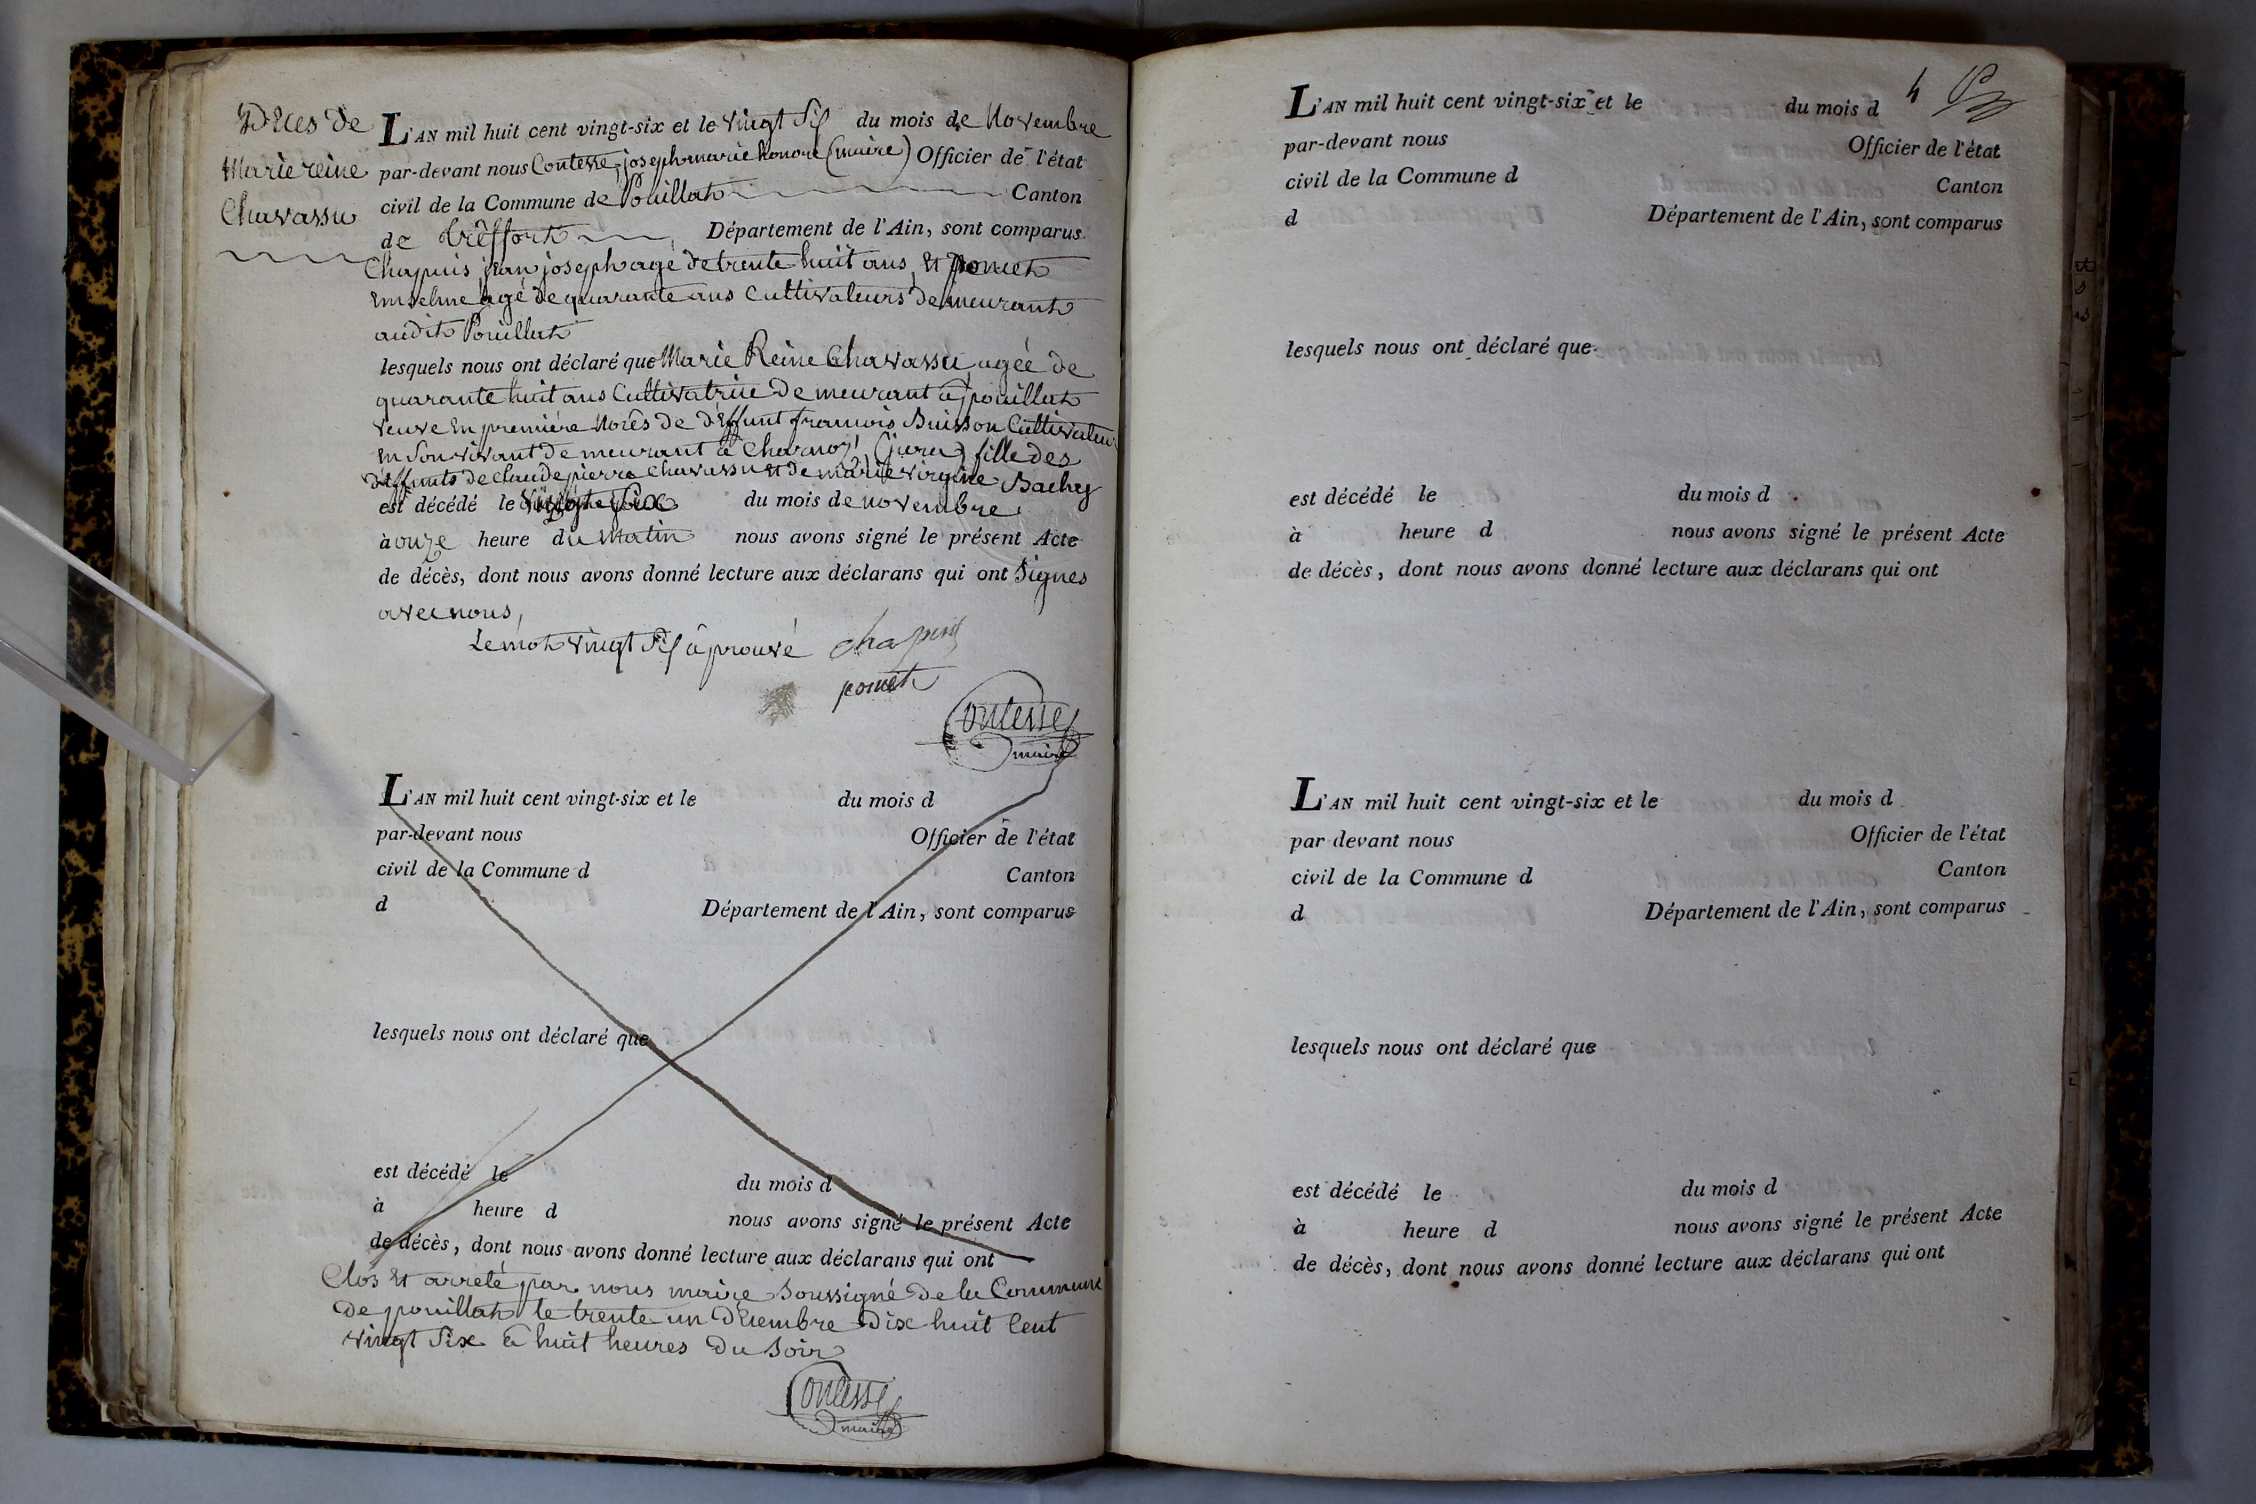 Déces de
Marie reine
Chavassu
L'AN mil huit cent vingt-six et le vingt Six du mois de Novembre
par-devant nous Contesse, joseph marie honoré (maire) Officier de l'état
civil de la Commune de Pouillat Canton
de Trêffort Département de l'Ain, sont comparus
Chapuis jean joseph agé de trente huit ans, Et Poncet
Enselme agé de quarante ans Cultivateurs Demeurant
audit Pouillat
lesquels nous ont déclaré que Marie Reine Chavassu, agée de
quarante huit ans Cultivatrice Demeurant à pouillat
veuve En premiére Noces de Déffunt francois Buisson Cultivateur
En Son vivant Demeurant à Charnoz, (jura) fille des
Déffunts de claude pierre Chavassu et de marie virgine Bachy
est décédé le vingt Six du mois de novembre
à onze heure du Matin nous avons signé le présent Acte
de décès, dont nous avons donné lecture aux déclarans qui ont Signés
avec nous,
Le mot vingt Six aprouvé chapuis
poncet
Contesse
maire
L'AN mil huit cent vingt-six et le du mois d
par-devant nous Officier de l'état
civil de la Commune d Canton
d Département de l'Ain, sont comparus
lesquels nous ont déclaré que
est décédé le du mois d
à heure d nous avons signé le présent Acte
de décès, dont nous avons donné lecture aux déclarans qui ont
Clos Et arreté par nous maire Soussigné de la Commune
de pouillat le trente un Décembre Dix huit Cent
vingt Six à huit heures du Soir
Contesse
maire
4
L'AN mil huit cent vingt-six et le du mois d
par-devant nous Officier de l'état
civil de la Commune d Canton
d Département de l'Ain, sont comparus
lesquels nous ont déclaré que
est décédé le du mois d
à heure d nous avons signé le présent Acte
de décès, dont nous avons donné lecture aux déclarans qui ont
L'AN mil huit cent vingt-six et le du mois d
par devant nous Officier de l'état
civil de la Commune d Canton
d Département de l'Ain, sont comparus
lesquels nous ont déclaré que
est décédé le du mois d
à heure d nous avons signé le présent Acte
de décès, dont nous avons donné lecture aux déclarans qui ont